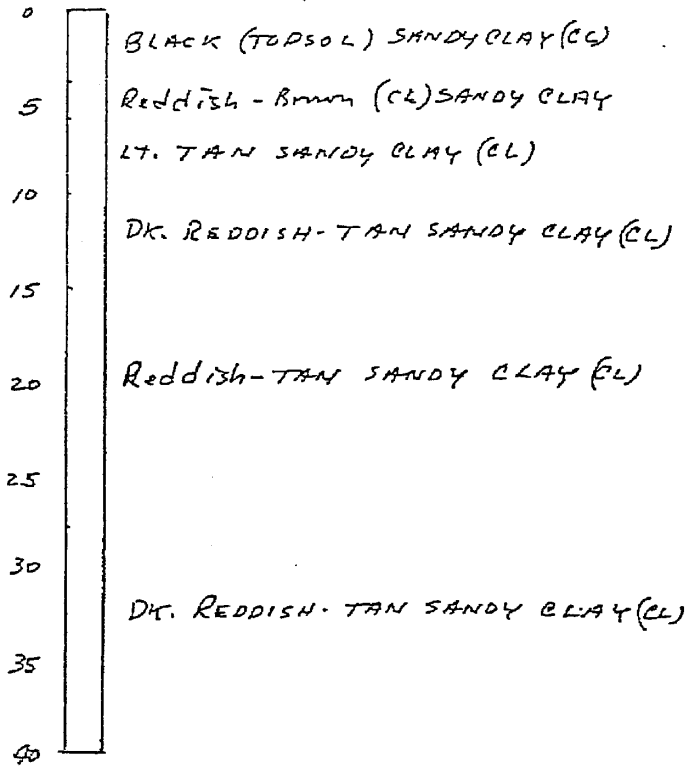 0
BLACK (TOPSOL) SANDY CLAY (CL)
5
Reddish-Brown (CL) SANDY CLAY
LT. TAN SANDY CLAY (CL)
10
DK. REDDISH-TAN SANDY CLAY (CL)
15
20
Reddish-TAN SANDY CLAY (CL)
25
30
DK. REDDISH-TAN SANDY CLAY (CL)
35
40